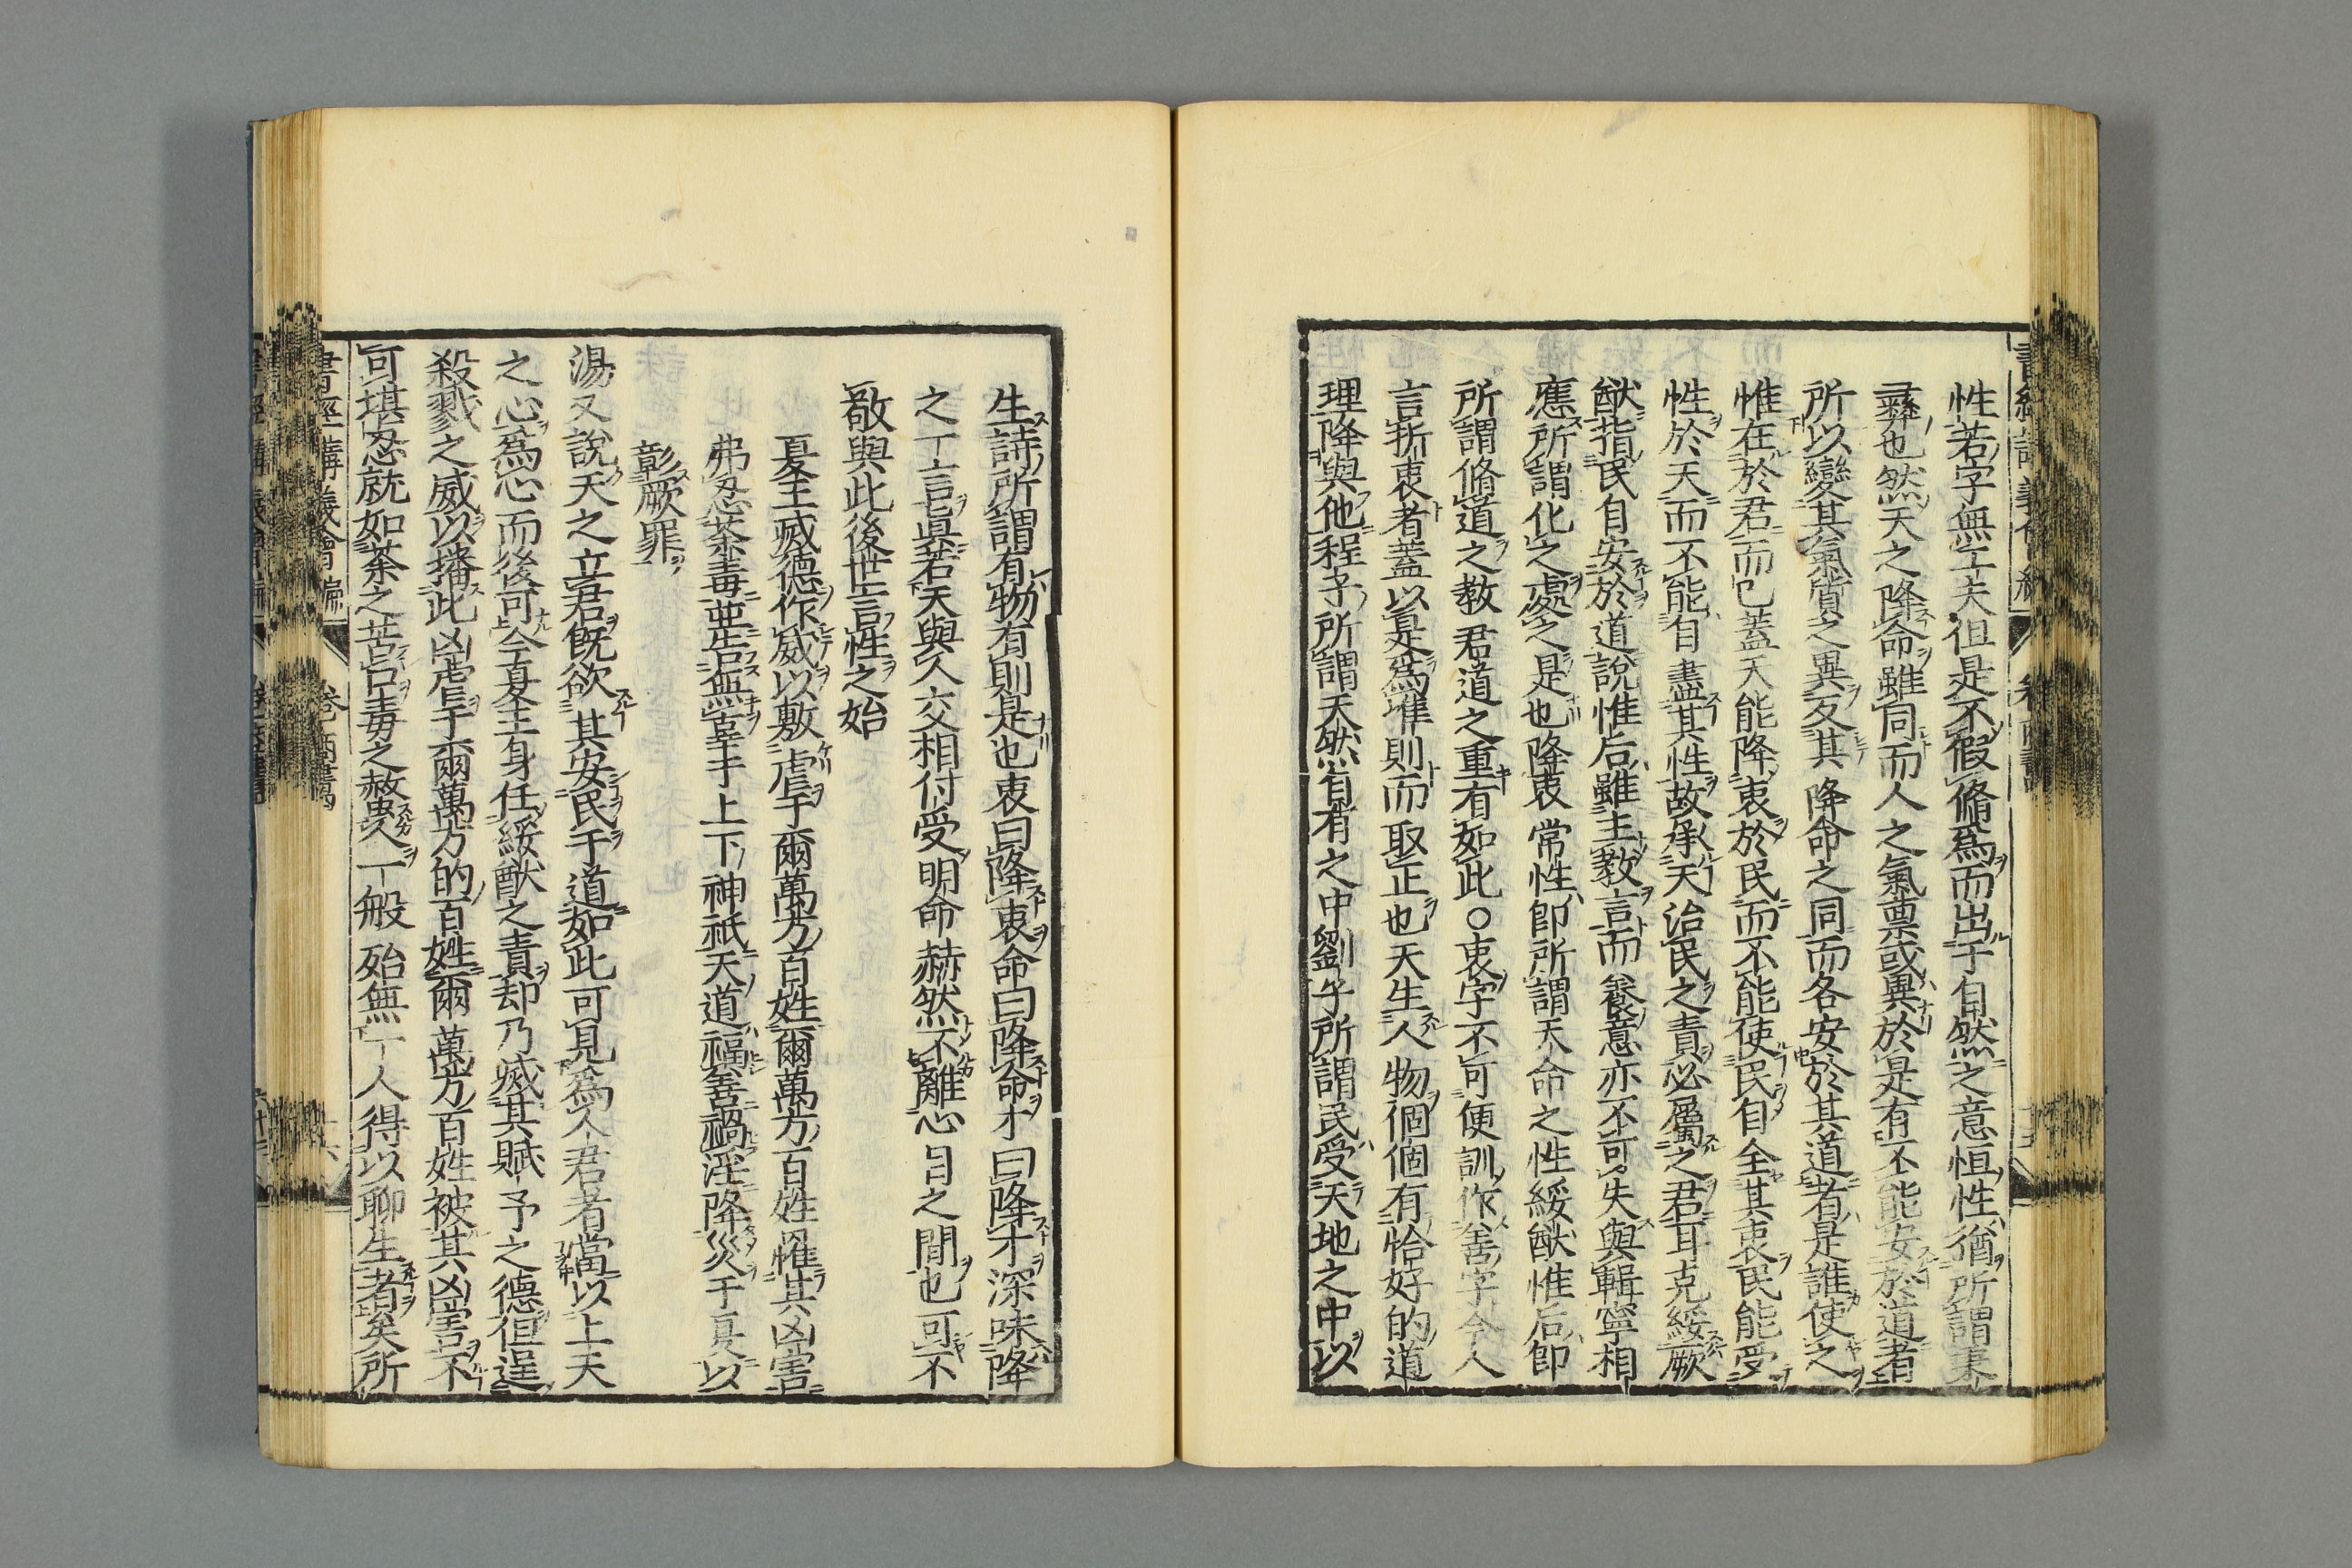 性若字無工夫但是不假脩爲而出于自然之意恒性猶所謂秉
彛也然天之降命雖同而人之氣禀或異於是有不能安於道者
所以變其氣質之異反其降命之同而各安於其道者是誰使之
惟在於君而已蓋天能降衷於民而不能使民自全其衷民能受
性於天而不能自盡其性故承天治民之責必屬之君耳克綏厥
猷指民自安於道說惟后雖主教言而養意亦不可失與輯寧相
應所謂化之處之是也降衷常性即所謂天命之性綏猷惟后即
所謂脩道之教君道之重有如此○衷字不可便訓作善字今人
言折衷者蓋以是爲準則而取正也天生人物個個有恰好的道
理降與他程子所謂天然自有之中劉子所謂民受天地之中以
生詩所謂有物有則是也衷曰降衷命曰降命才曰降才深味降
之一言眞若天與人交相付受明命赫然不離心目之間也可不
敬與此後世言性之始
夏王滅德作威以敷虐于爾萬方百姓爾萬方百姓罹其凶害
弗忍荼毒並告無辜于上下神祇天道福善禍淫降災于夏以
彰厥罪
湯又說天之立君旣欲其安民于道如此可見爲人君者當以上天
之心爲心而後可今夏王身任綏猷之責却乃滅其賦予之德但逞
殺戮之威以播此凶虐于爾萬方的百姓爾萬方百姓被其凶害不
可堪忍就如荼之苦口毒之螫人一般殆無一人得以聊生者矣所
書經講義會編
卷 商書